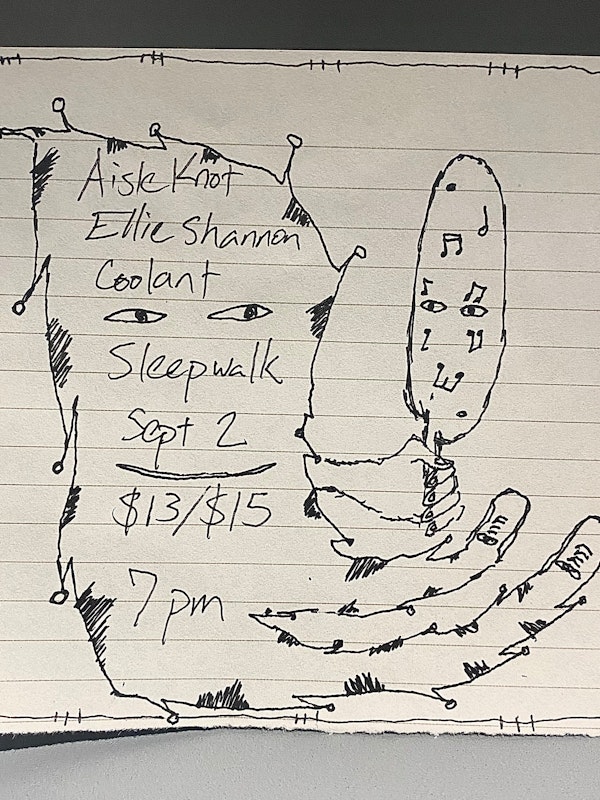 Aisle Knot
Ellie Shannon
Coolant
Sleepwalk
Sept 2
$13/$15
7pm